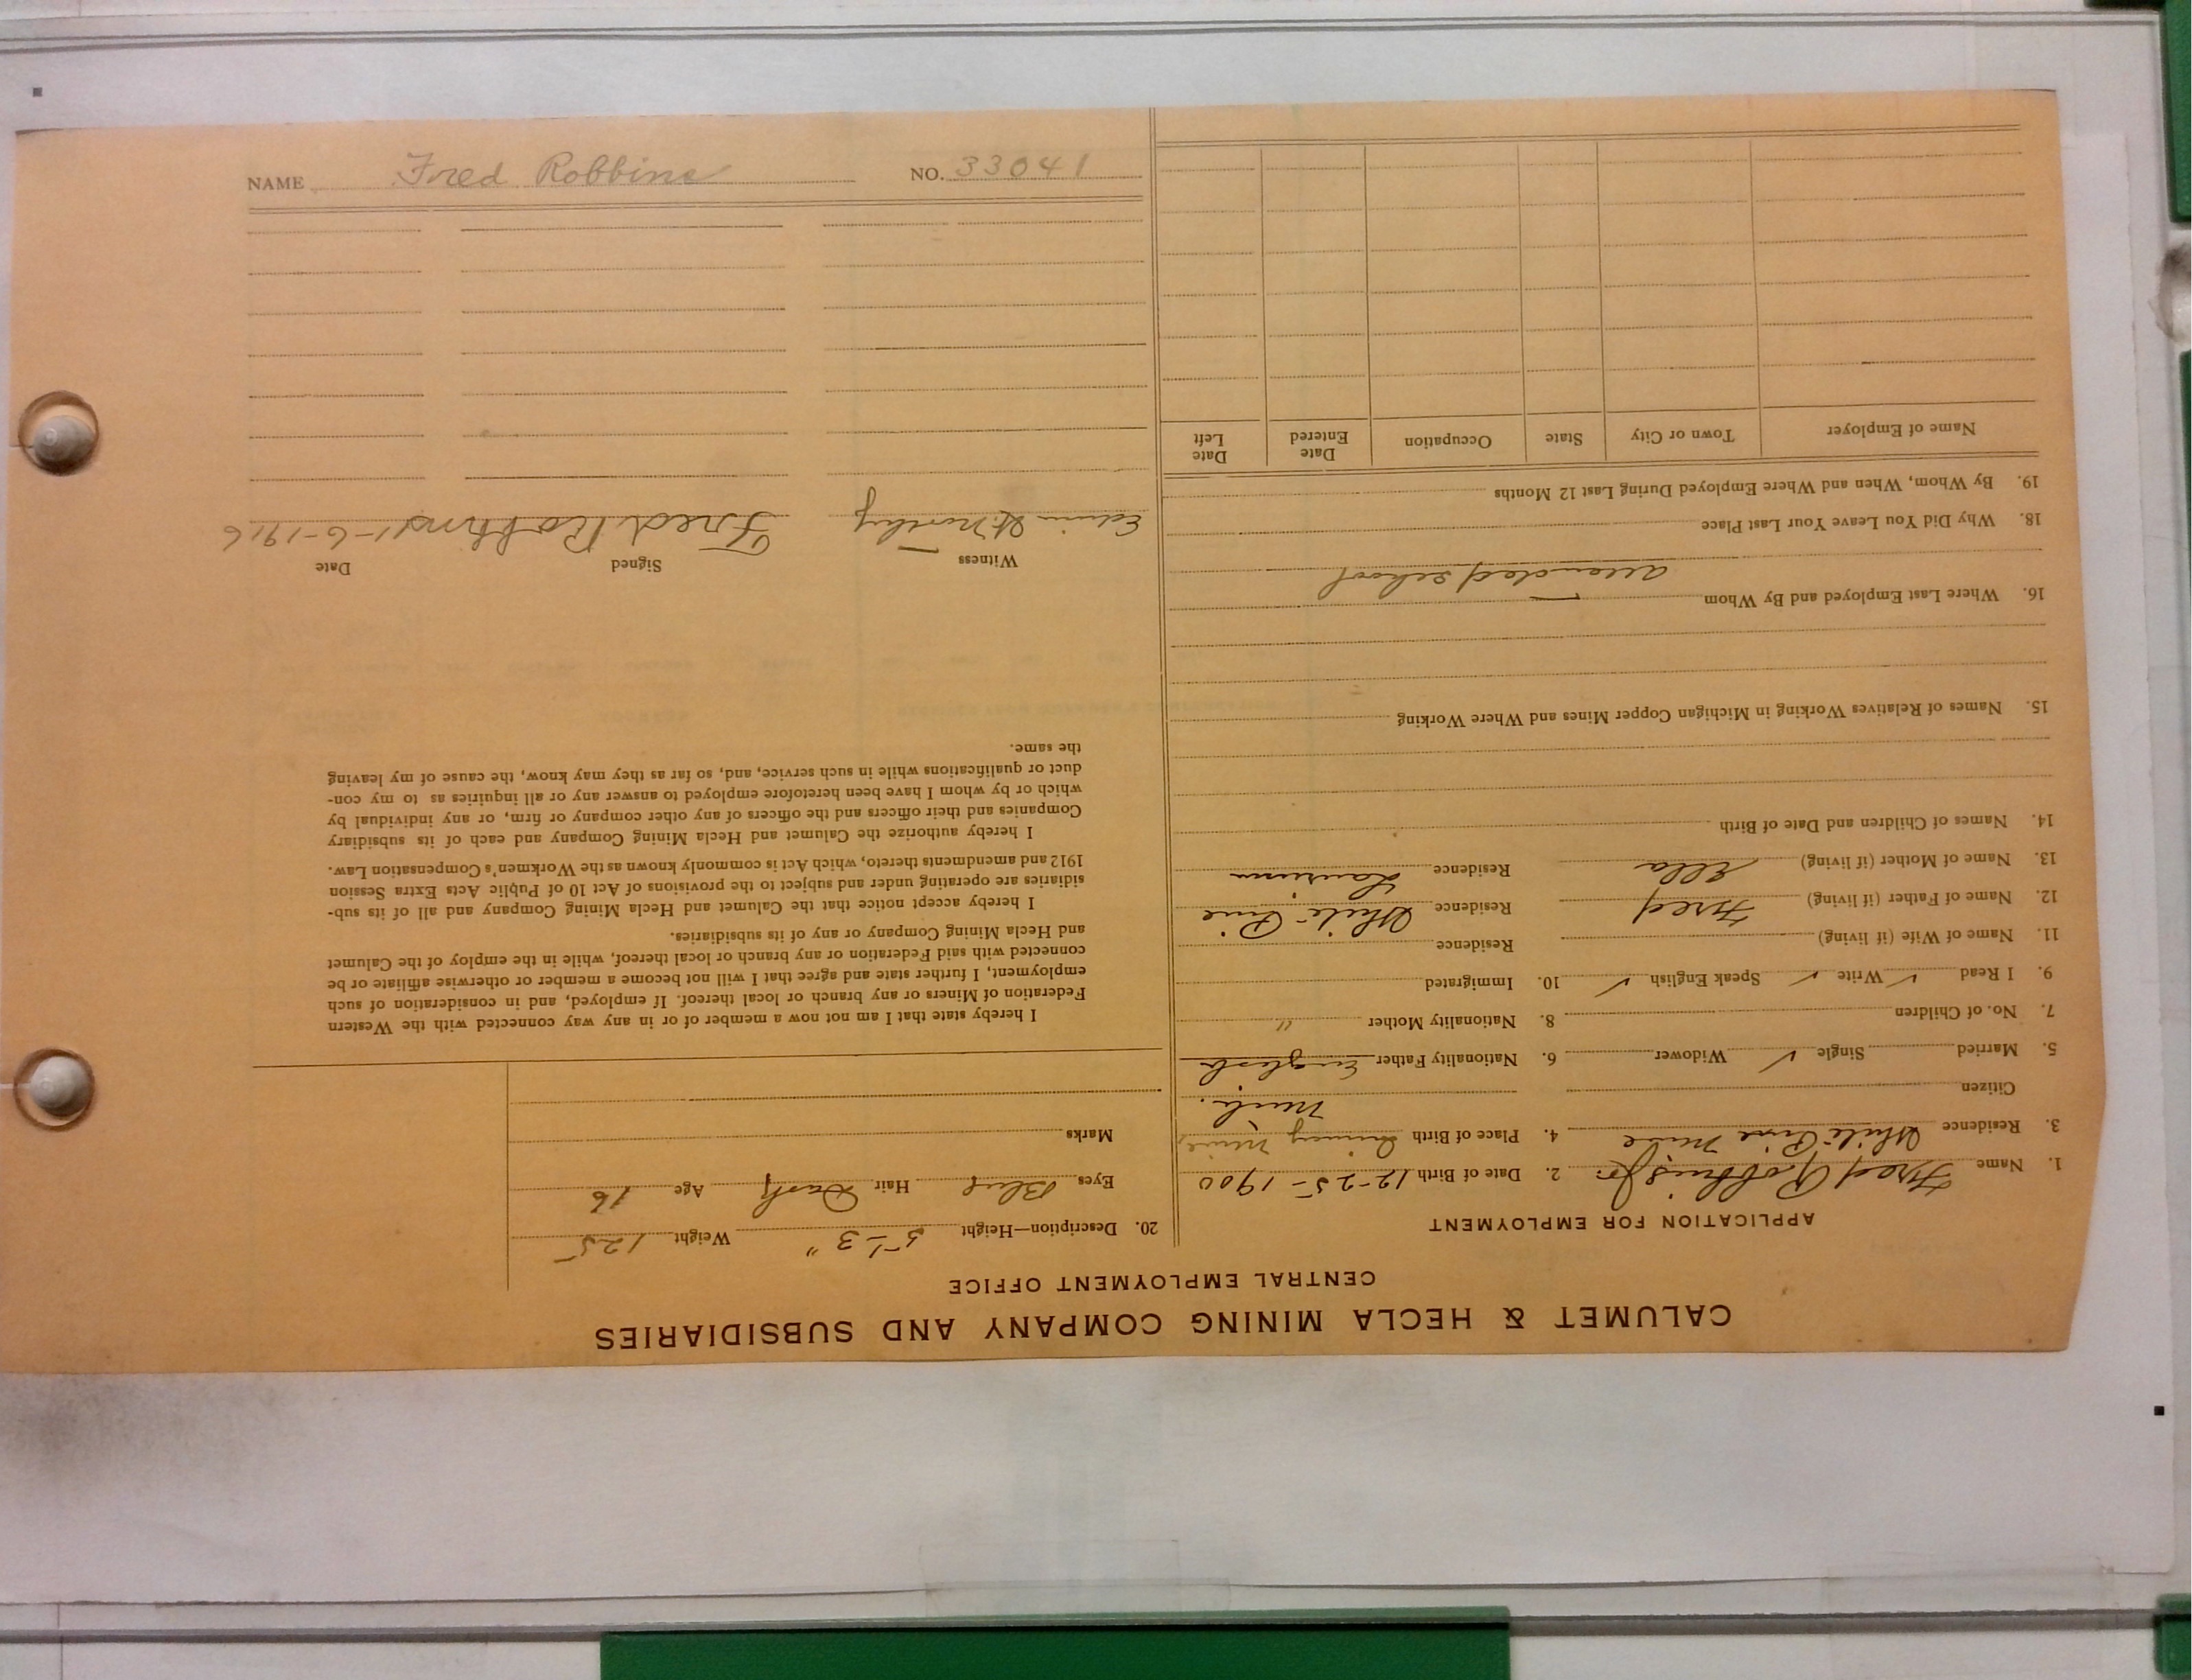 CALUMET & HECLA MINING COMPANY AND SUBSIDIARIES
CENTRAL EMPLOYMENT OFFICE
APPLICATION FOR EMPLOYMENT
1. Name Fred Robbins Jr. 2. Date of Birth 12-25-1900
3. Residence White Pine Mine 4. Place of Birth Quincy Mine,
Citizen Mich.
5. Married Single ✓ Widower 6. Nationality Father English
7. No. of Children 8. Nationality Mother "
9. I Read ✓ Write ✓ Speak English ✓ 10. Immigrated
11. Name of Wife (if living) Residence
12. Name of Father (if living) Fred Residence White Pine
13. Name of Mother (if living) Ella Residence Laurium
14. Names of Children and Date of Birth
15. Names of Relatives Working in Michigan Copper Mines and Where Working
16. Where Last Employed and By Whom —
attended school
18. Why Did You Leave Your Last Place
19. By Whom, When and Where Employed During Last 12 Months
Name of Employer Town or City State Occupation Date Entered Date Left
20. Description—Height 5'-3" Weight 125
Eyes Blue Hair Dark Age 16
Marks
I hereby state that I am not now a member of or in any way connected with the Western
Federation of Miners or any branch or local thereof. If employed, and in consideration of such
employment, I further state and agree that I will not become a member or otherwise affiliate or be
connected with said Federation or any branch or local thereof, while in the employ of the Calumet
and Hecla Mining Company or any of its subsidiaries.
I hereby accept notice that the Calumet and Hecla Mining Company and all of its sub-
sidiaries are operating under and subject to the provisions of Act 10 of Public Acts Extra Session
1912 and amendments thereto, which Act is commonly known as the Workmen's Compensation Law.
I hereby authorize the Calumet and Hecla Mining Company and each of its subsidiary
Companies and their officers and the officers of any other company or firm, or any individual by
which or by whom I have been heretofore employed to answer any or all inquiries as to my con-
duct or qualifications while in such service, and, so far as they may know, the cause of my leaving
the same.
Witness Signed Date
Edwin Fred Robbins 1-6-1916
NAME Fred Robbins NO. 33041